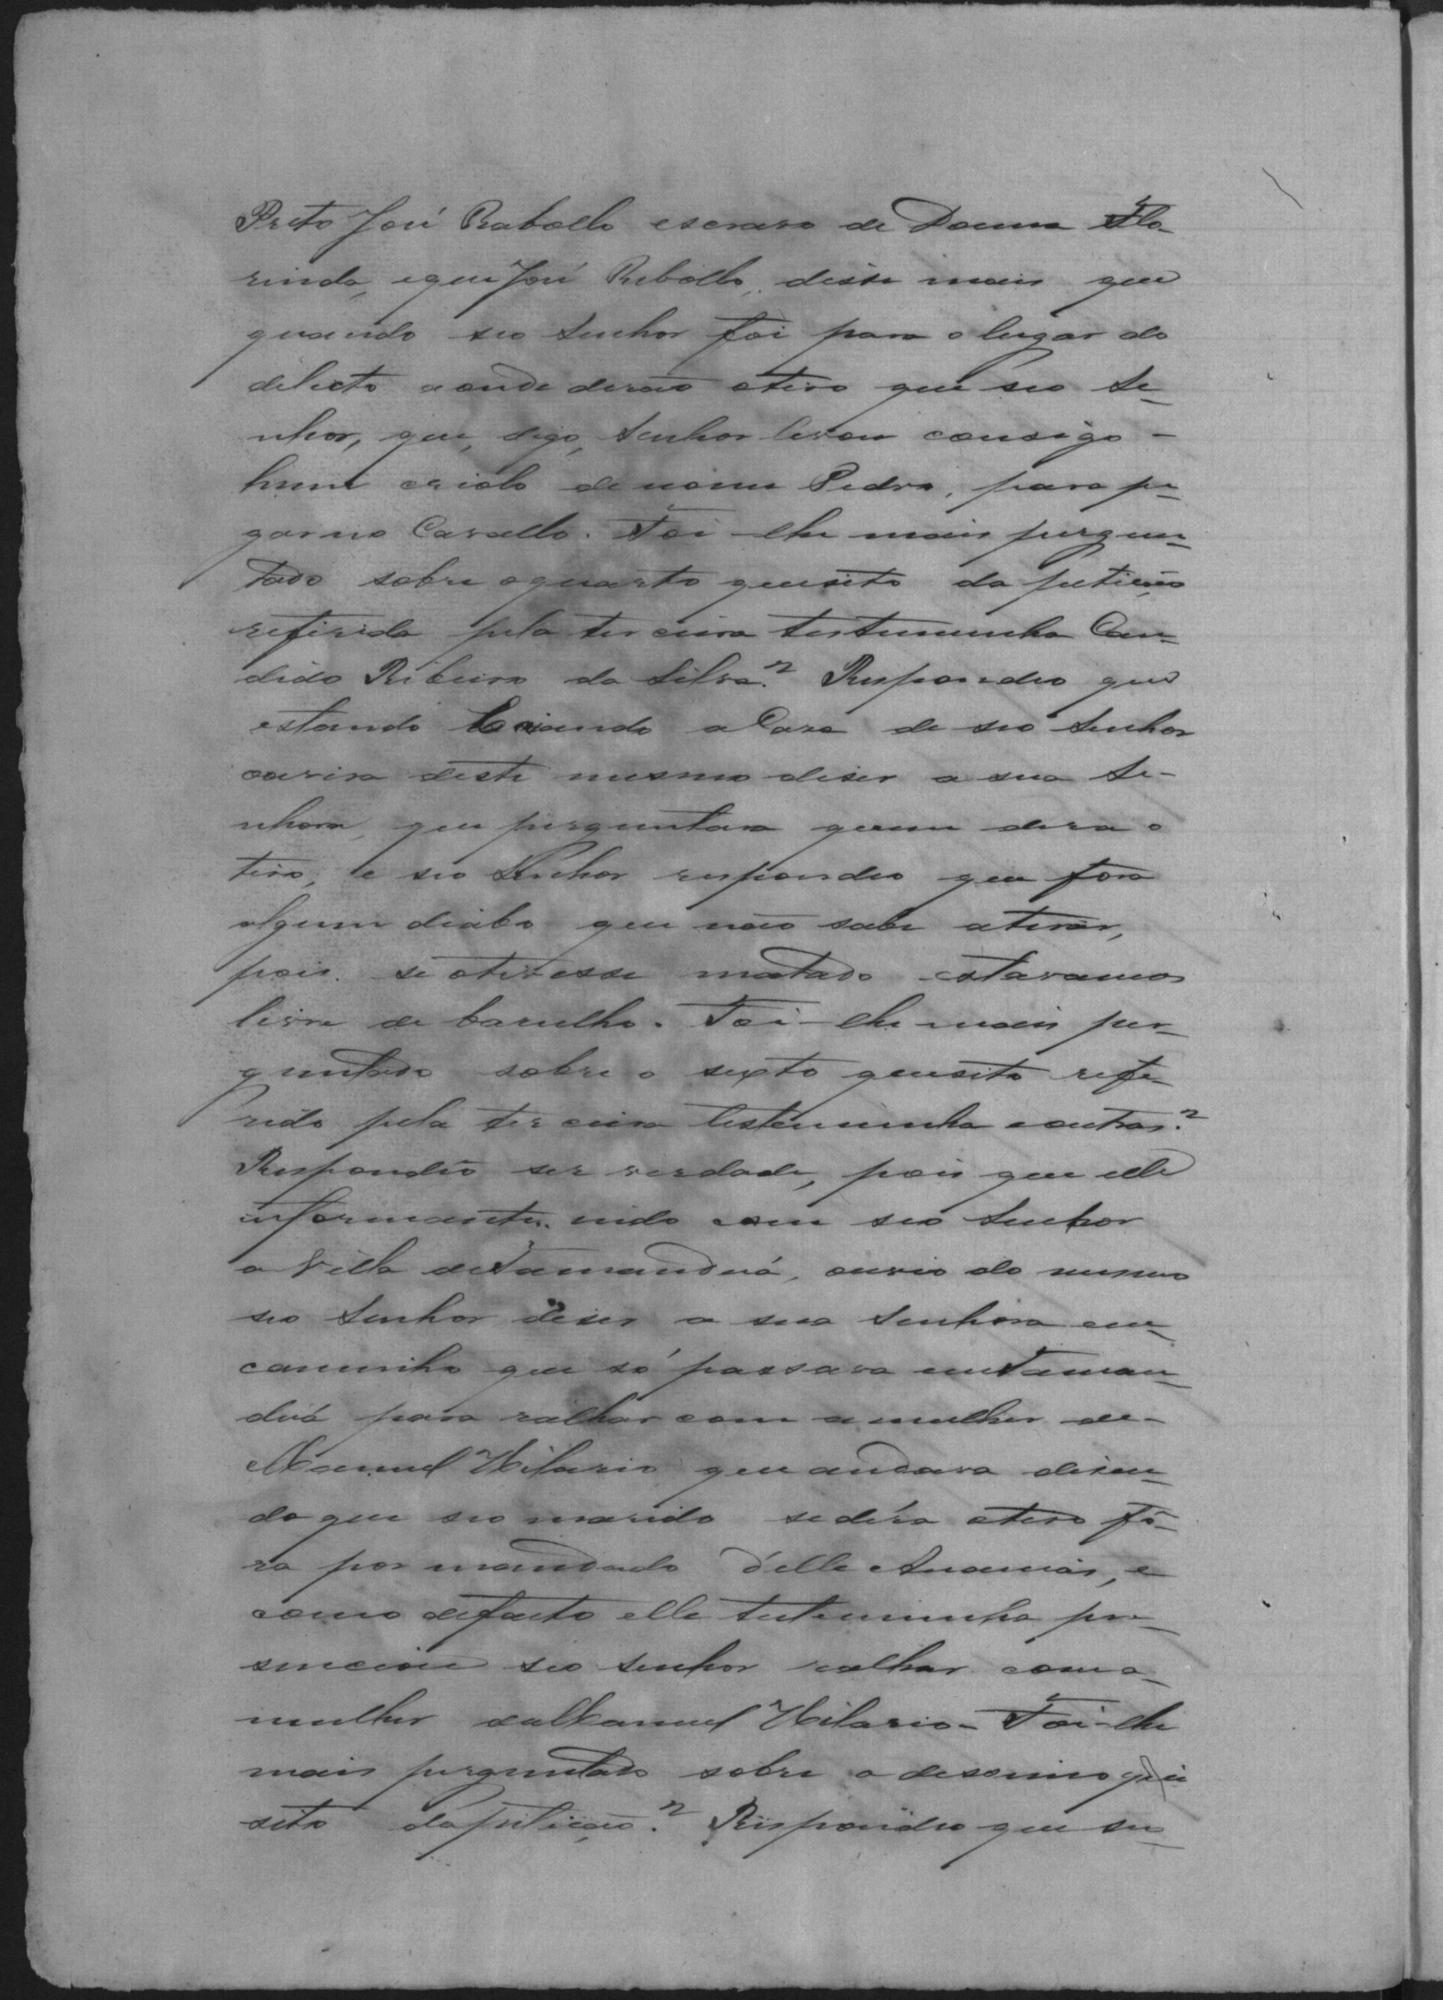 Preto José Rabollo escravo de Donna Flo-
rinda, e que José Rebollo, disse mais que
quando seo Senhor foi para o lugar do
delicto aonde derão otiro que seo Se-
nhor, que, digo, Senhor levou consigo -
hum criolo de nome Pedro, para pe-
gar no Cavallo. Foi-lhe mais pergun-
tado sobre oquarto quesito da petição
referida pela terceira testemunha Can-
dido Ribeiro da Silva? Respondeo que
estando Caiando a Caza de seo Senhor
ouvira deste mesmo diser a sua Se-
nhora, que perguntara quem dera o
tiro, e seo Senhor respondeo que fora
algum diabo que não sabe atirar,
pois se otivesse matado estavamos
livre de barulho. Foi-lhe mais per-
guntado sobre o sexto quesito refe-
rido pela terceira testemunha eoutras?
Respondeo ser verdade, pois que elle
informante, indo com seo Senhor
a Villa de Tamanduá, ouvio do mesmo
seo Senhor diser a sua Senhora em
caminho que só passava em Taman-
duá para ralhar com a mulher de-
Manuel Hilario que andava disen-
do que seo marido se déra otiro fô-
ra por mandado d'elle Ananias, e
como defacto elle testemunha pre-
senciou seo Senhor ralhar com a-
mulher de Manuel Hilario - Foi-lhe
mais perguntado sobre o decimo que-
sito dapetição? Respondeo que seo